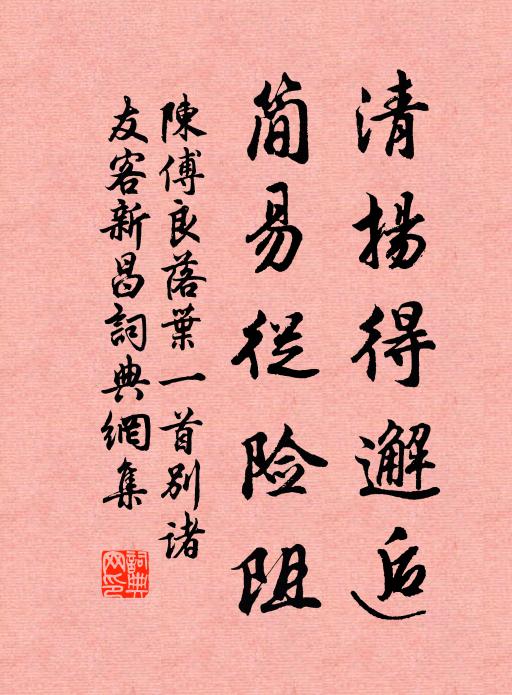 清揚得邂逅
简易從险阻
陳傅良落葉一首別諸
友客新昌詞典網集
詞典网印